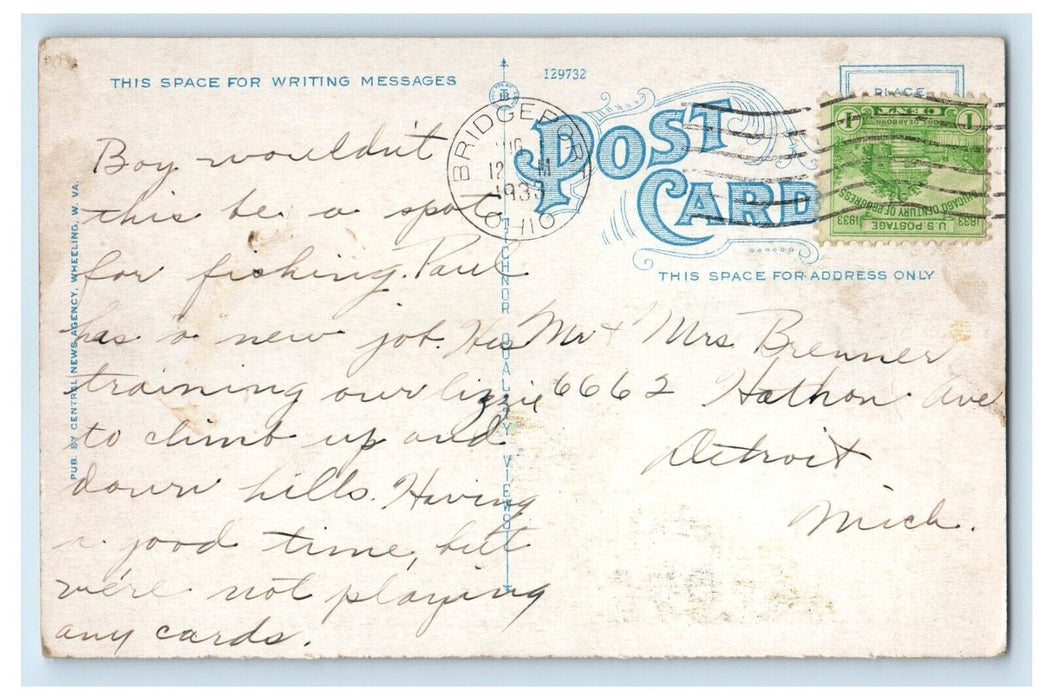 THIS SPACE FOR WRITING MESSAGES
129732
PLACE
POST
CARD
THIS SPACE FOR ADDRESS ONLY
BRIDGEPORT
12 M
1933
OHIO
1 CENT 1
FORT DEARBORN
CHICAGO CENTURY OF PROGRESS
1933 U.S. POSTAGE 1933
PUB. BY CENTRAL NEWS AGENCY, WHEELING, W. VA.
TICHNOR QUALITY VIEWS
Boy wouldn't
this be a spot
for fishing. Paul
has a new job. He's
training our lizzie
to climb up and
down hills. Having
a good time, but
we're not playing
any cards.
Mr + Mrs Brenner
6662 Hathon Ave
Detroit
Mich.